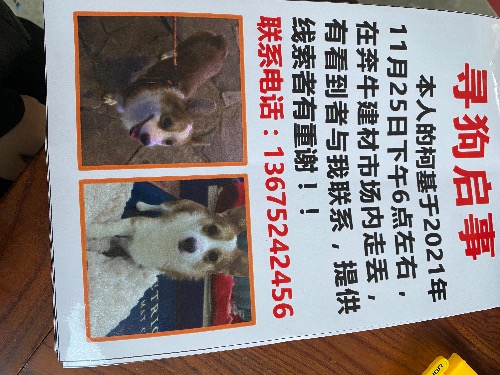 寻狗启事
本人的柯基于2021年
11月25日下午6点左右，
在奔牛建材市场内走丢，
有看到者与我联系，提供
线索者有重谢！！
联系电话：13675242456